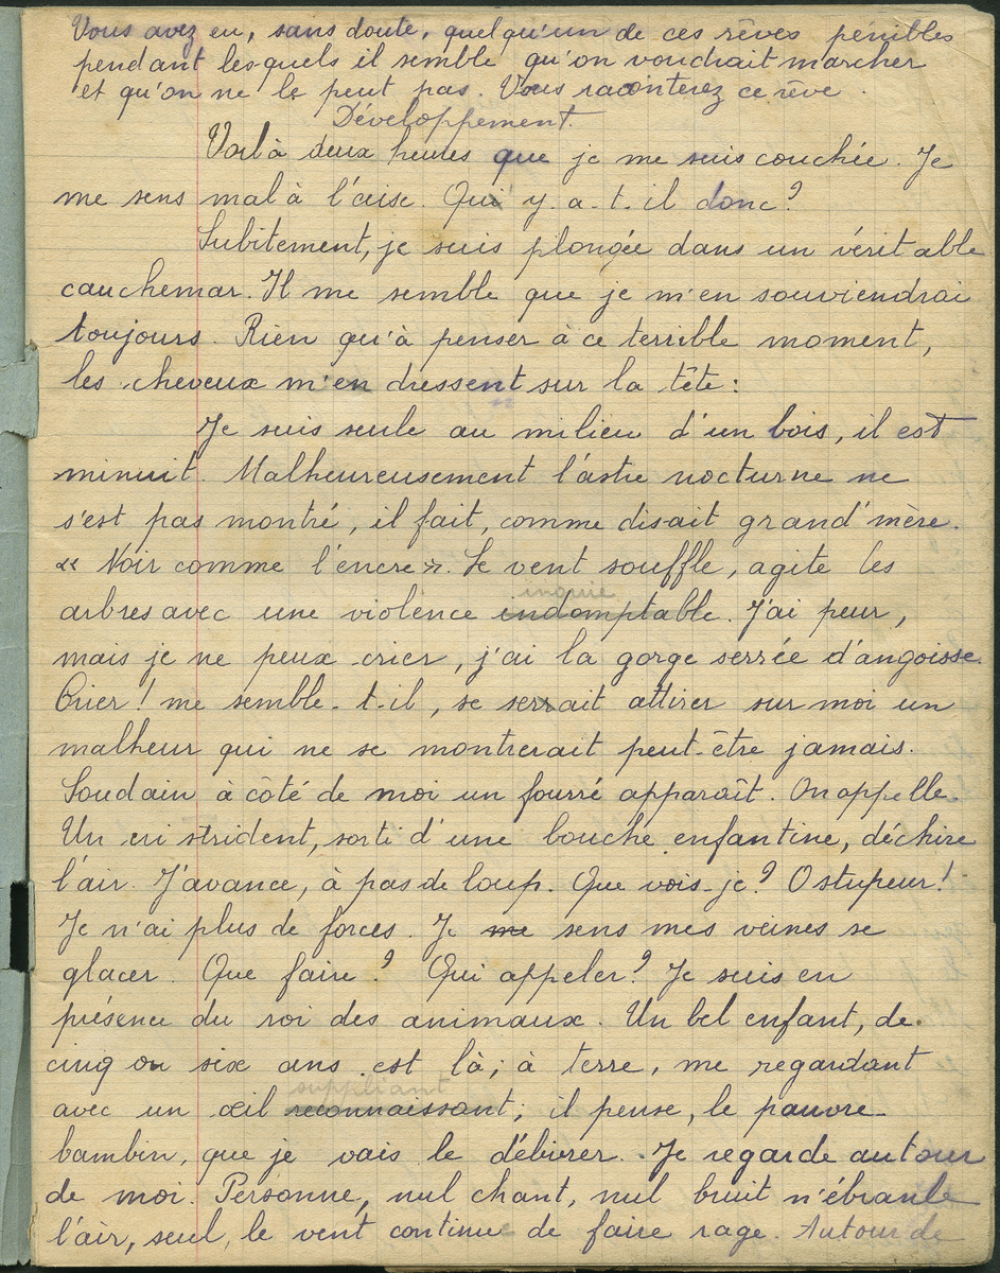 Vous avez eu, sans doute, quelqu'un de ces rêves pénibles
pendant lesquels il semble qu'on voudrait marcher
et qu'on ne le peut pas. Vous raconterez ce rêve.
Développement.
Voilà deux heures que je me suis couchée. Je
me sens mal à l'aise. Qui y-a-t-il donc?
Subitement, je suis plongée dans un véritable
cauchemar. Il me semble que je m'en souviendrai
toujours. Rien qu'à penser à ce terrible moment,
les cheveux m'en dressent sur la tête:
Je suis seule au milieu d'un bois, il est
minuit. Malheureusement l'astre nocturne ne
s'est pas montré, il fait, comme disait grand'mère.
« Noir comme l'encre ». Le vent souffle, agite les
inouïe
arbres avec une violence indomptable. J'ai peur,
mais je ne peux crier, j'ai la gorge serrée d'angoisse.
Crier! me semble-t-il, se serrait attirer sur moi un
malheur qui ne se montrerait peut-être jamais.
Soudain à côté de moi un fourré apparaît. On appelle.
Un cri strident, sorti d'une bouche enfantine, déchire
l'air. J'avance, à pas de loup. Que vois-je? O stupeur!
Je n'ai plus de forces. Je me sens mes veines se
glacer. Que faire? Qui appeler? Je suis en
présence du roi des animaux. Un bel enfant, de
cinq ou six ans est là; à terre, me regardant
suppliant
avec un œil reconnaissant; il pense, le pauvre
bambin, que je vais le délivrer. Je regarde autour
de moi. Personne, nul chant, nul bruit n'ébranle
l'air, seul, le vent continue de faire rage. Autour de